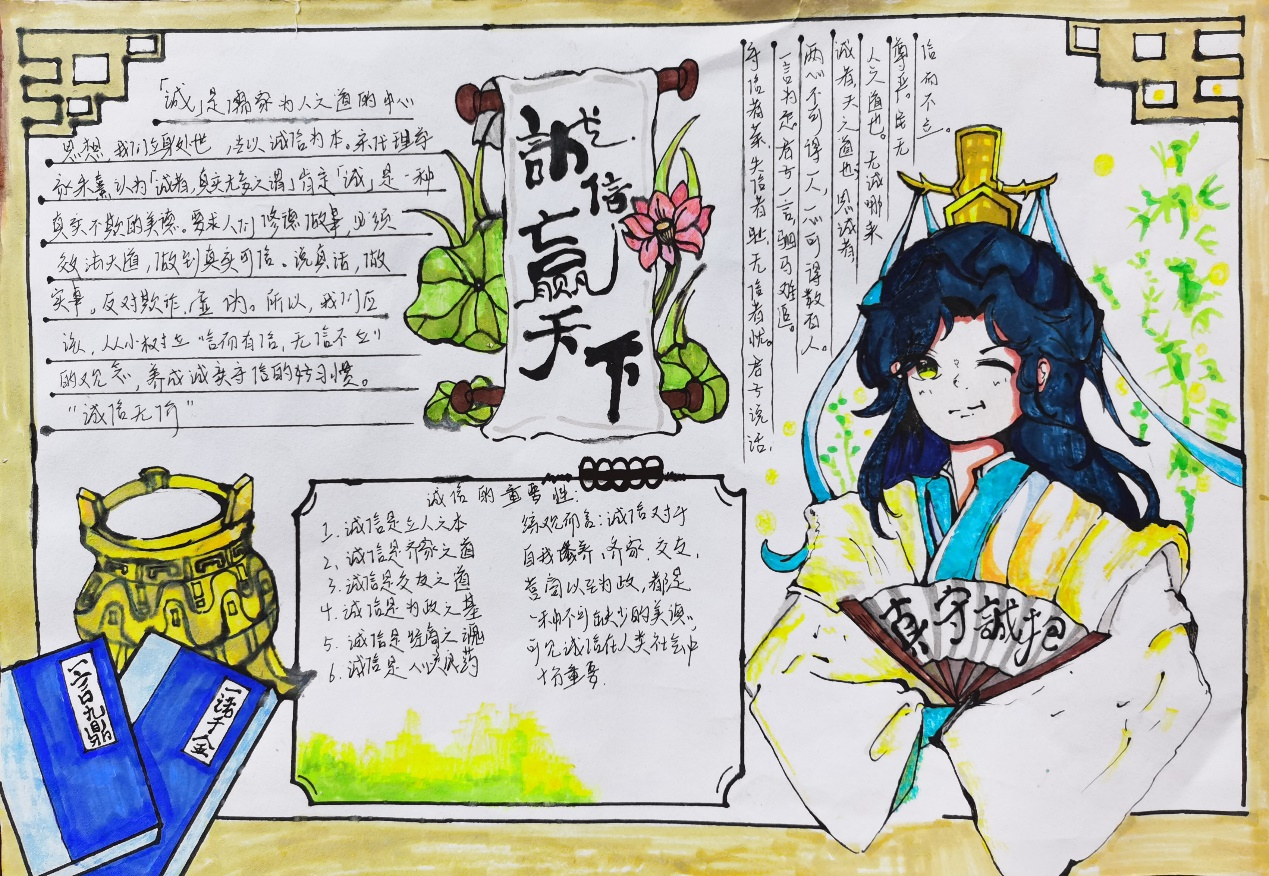 「誠」是儒家为人之道的中心
思想,我们立身处世,当以诚信为本。宋代理学
家朱熹认为「诚者,真实无妄之谓」肯定「诚」是一种
真实不欺的美德。要求人们修德做事,必须
效法天道,做到真实可信。说真话,做
实事,反对欺诈,虚伪。所以,我们应
该,从小树立"言而有信,无信不立"
的观念,养成诚实守信的好习惯。
"诚信无价"
以
誠信
赢
天下
信而不立。
尊严。民无
人之道也。无诚哪来
诚者天之道也,思诚者
两心不可得一人,一心可得数百人。
一言为思。君子一言驷马难追。
守信者荣失信者耻,无信者忧。君子说话,
真守誠抱
一言九鼎
一诺千金
诚信的重要性:
1. 诚信是立人之本
2. 诚信是齐家之道
3. 诚信是交友之道
4. 诚信是为政之基
5. 诚信是经商之魂
6. 诚信是心灵良药
综观而言:诚信对于
自我修养、齐家、交友,
营商以至为政,都是
一种不可缺少的美德。
可见诚信在人类社会中
十分重要.